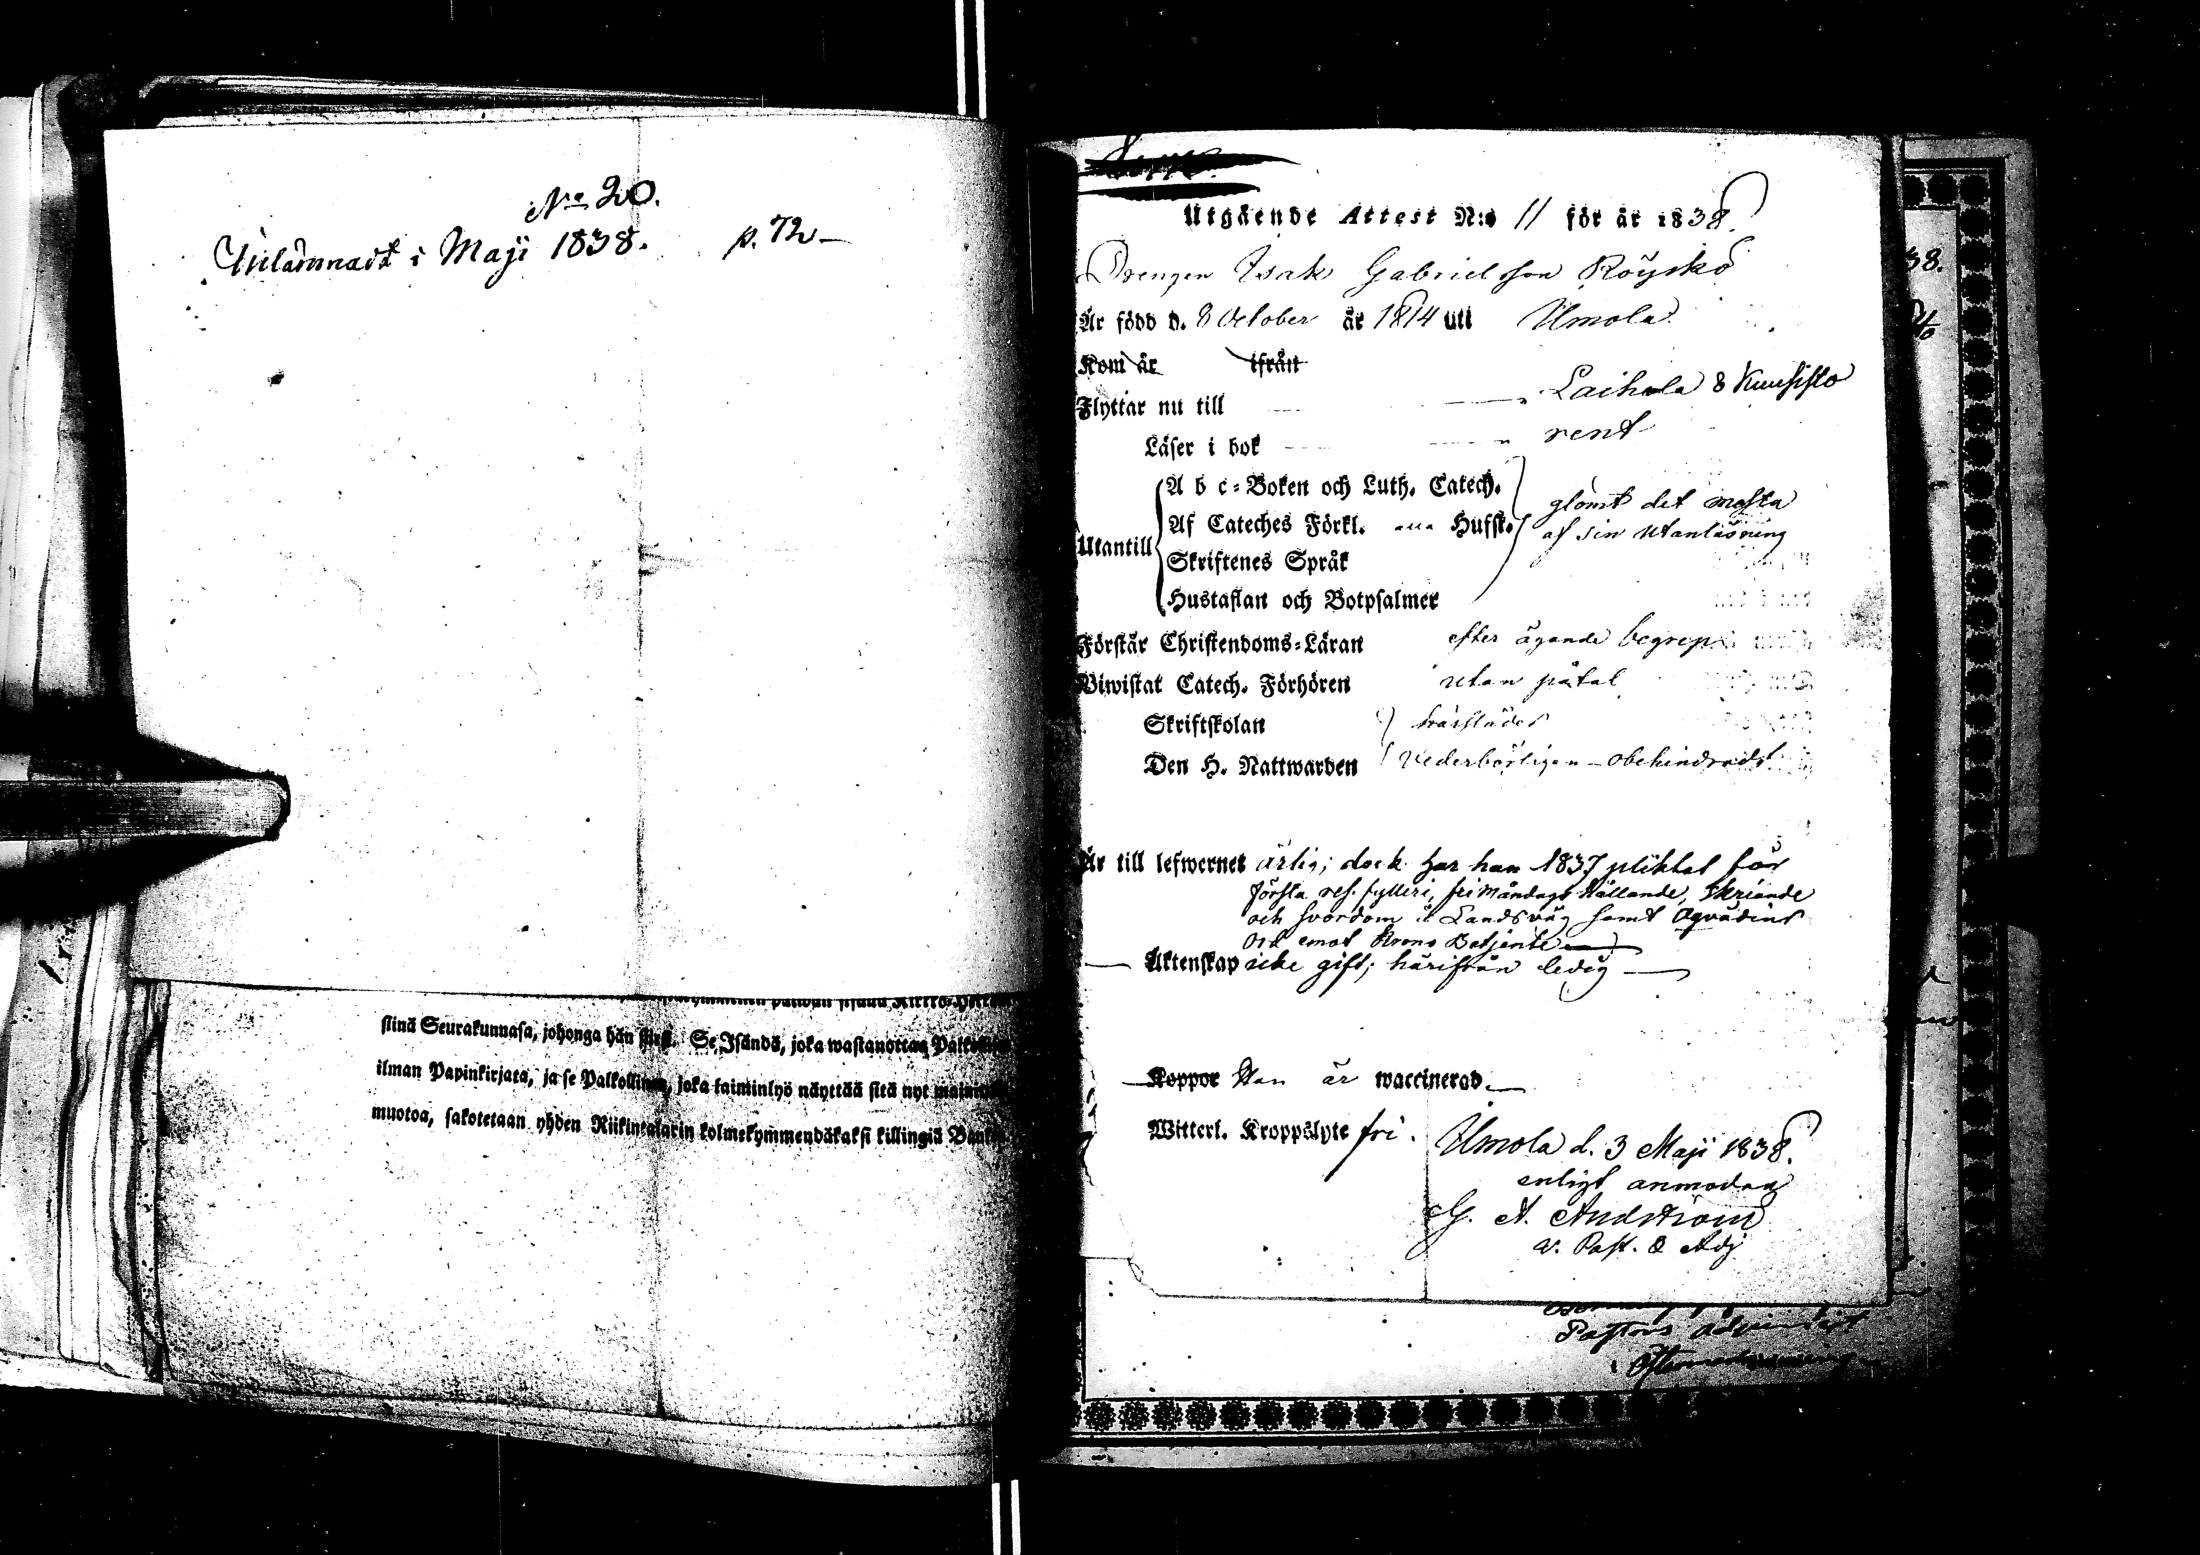 No 20.
Inlämnadt i Maji 1838. p. 72
stinä Seurakunnasa, johonga hän Se, Isändä, joka wastanottaa
ilman Papinkirjata, ja se Palkollinen, joka taiminlyö näyttää sitä nyt
muotoa, sakotetaan yhden Riikintalarin kolmekymmendäkaksi killingiä
Utgående Attest N:o 11 för år 1838.
Drengen Isak Gabrielsson Röyskö
Är född d. 8 October år 1814 uti Ilmola
Kom år ifrån
Flyttar nu till Laihela 8 Kuusisto
Läser i bok rent
A b c-Boken och Luth. Catech.
Af Cateches Förkl. Hufst. glömt det mesta
Utantill af sin utanläsning
Skriftenes Språk
Hustaflan och Botpsalmer
Förstår Christendoms-Läran efter ägande begrep
Biwistat Catech. Förhören utan påtal
Skriftskolan härstädes
Den H. Nattwarden Vederbörligen obehindradt
Är till lefwernet ärlig; dock har han 1837 pliktat för
första res. fylleri, fri Måndags hållande, Skriande
och svordom å Landsväg samt oqvädins
ord emot Krono Betjente
Äktenskap icke gift; härifrån ledig
Koppor Han är waccinerad.
Witterl. Kroppslyte fri.
Ilmola d. 3 Maji 1838.
enligt anmodan
G. A. Andström
v. Past. & Adj
Pastors